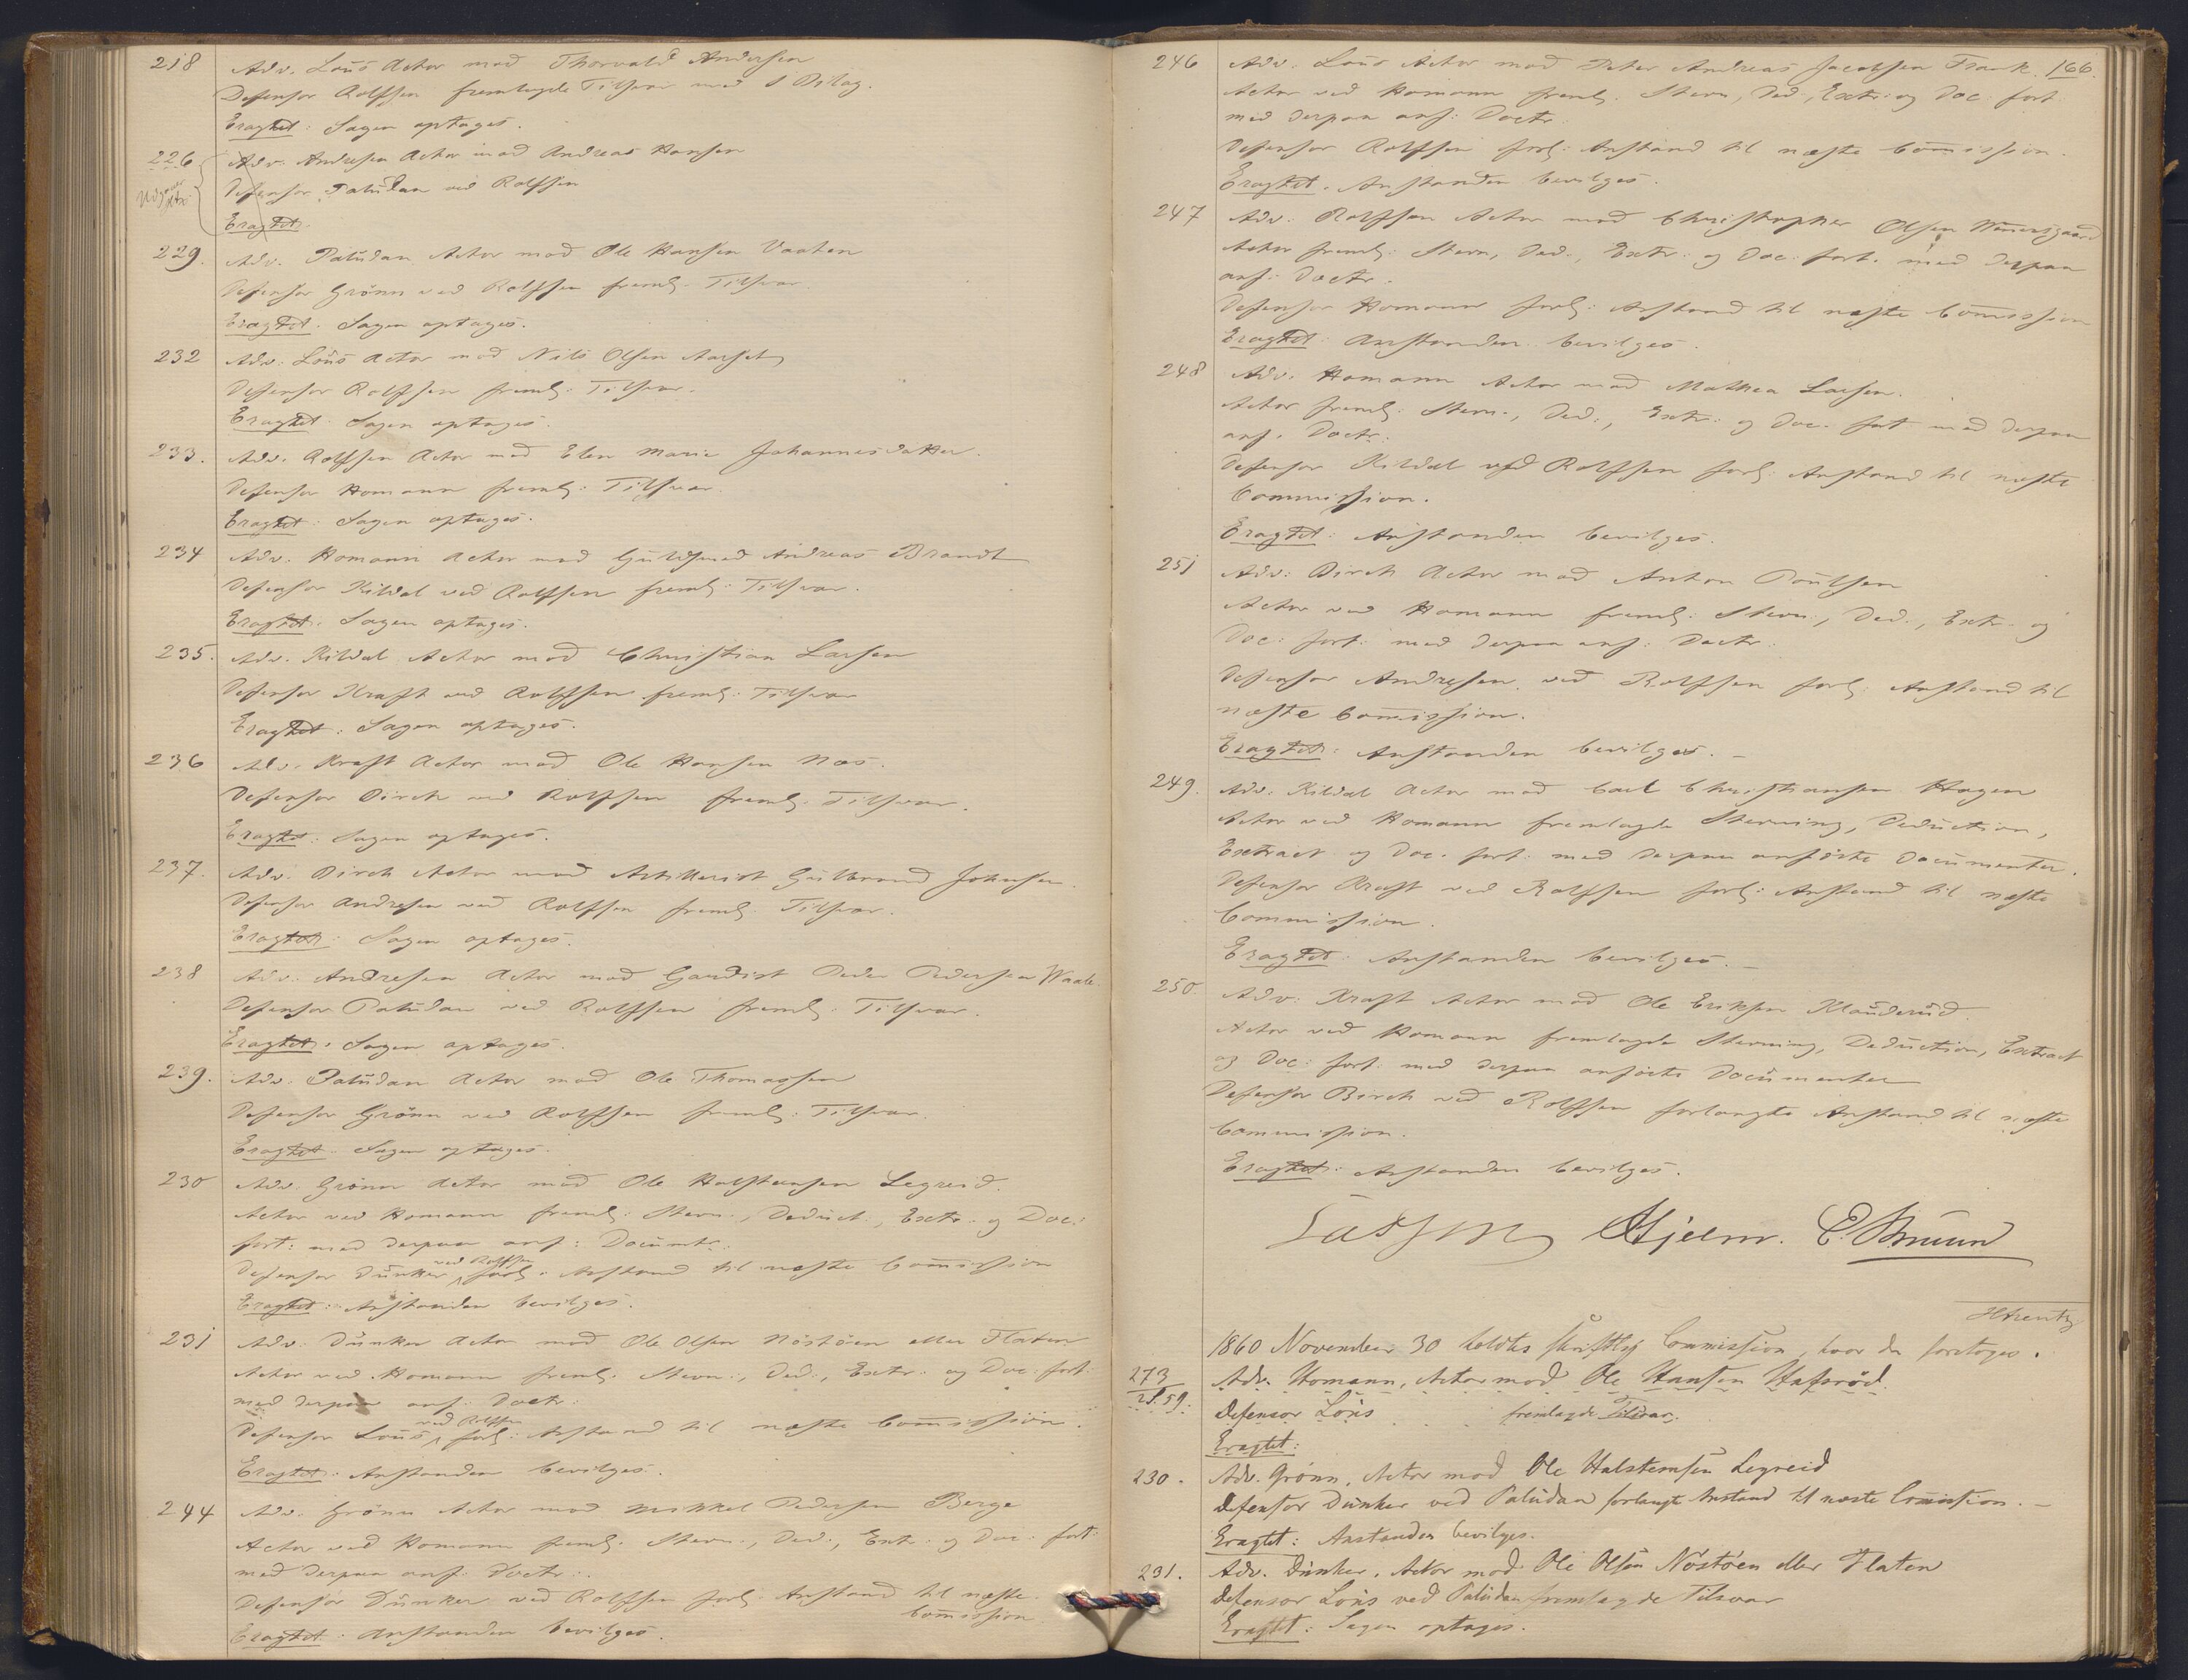 218 Adv. Lous Actor mod Thorvald Andersen
Defensor Rolffsen fremlagde Tilsvar med 1 Bilag.
Eragtet: Sagen optages.
226 Adv. Andresen Actor mod Andreas Hansen
Defensor Paludan ved Rolffsen
Eragtet:
229. Adv. Paludan Actor mod Ole Hansen Vaaten
Defensor Grönn ved Rolffsen freml. Tilsvar.
Eragtet. Sagen optages.
232 Adv. Lous Actor mod Nils Olsen Aarset
Defensor Rolffsen freml: Tilsvar.
Eragtet Sagen optages.
233. Adv. Rolffsen Actor mod Elen Marie Johannesdatter.
Defensor Homann freml: Tilsvar.
Eragtet: Sagen optages.
234 Adv. Homann Actor mod Guldsmed Andreas Brandt
Defensor Kildal ved Rolffsen freml: Tilsvar.
Eragtet. Sagen optages.
235. Adv. Kildal Actor mod Christian Larsen
Defensor Kraft ved Rolffsen freml: Tilsvar
Eragtet: Sagen optages.
236 Adv. Kraft Actor mod Ole Hansen Næs.
Defensor Birch ved Rolffsen freml. Tilsvar.
Eragtet: Sagen optages.
237. Adv. Birch Actor mod Artillerist Gulbrand Johnsen.
Defensor Andresen ved Rolffsen freml. Tilsvar.
Eragtet: Sagen optages.
238 Adv. Andresen Actor mod Gardist Peder Pedersen Waale
Defensor Paludan ved Rolffsen freml: Tilsvar.
Eragtet: Sagen optages.
239. Adv. Paludan Actor mod Ole Thomassen
Defensor Grönn ved Rolffsen freml: Tilsvar.
Eragtet: Sagen optages.
230 Adv. Grönn Actor mod Ole Halstensen Legreid.
Actor ved Homann freml: Stevn., Deduct., Extr. og Doc:
fort: med derpaa anf: Documtr:
Defensor Dunker ved Rolffsen forl: Anstand til næste Commission
Eragtet: Anstanden bevilges.
231 Adv: Dunker Actor mod Ole Olsen Nöstöen eller Flaten
Actor ved Homann freml. Stevn:, Ded:, Extr: og Doc: fort:
med derpaa anf: Doctr:
Defensor Lous ved Rolffsen forl: Anstand til næste Commission.
Eragtet: Anstanden bevilges.
244 Adv. Grönn Actor mod Mikkel Pedersen Berge
Actor ved Homann freml. Stevn:, Ded:, Extr. og Doc: fort:
med derpaa anf: Doctr:.
Defensor Dunker ved Rolffsen forl: Anstand til næste
Commission
Eragtet: Anstanden bevilges.
166.
246 Adv. Lous Actor mod Peter Andreas Jacobsen Frank.
Actor ved Homann freml. Stevn, Ded., Extr: og Doc. fort
med derpaa anf: Doctr.
Defensor Rolffsen forl: Anstand til næste Commission.
Eragtet. Anstanden bevilges.
247 Adv. Rolffsen Actor mod Christopher Olsen
Actor freml: Stevn, Ded., Extr: og Doc: fort. med derpaa
anf: Doctr.
Defensor Homann forl: Anstand til næste Commission
Eragtet: Anstanden bevilges.
248 Adv. Homann Actor mod Mathea Larsen.
Actor freml: Stevn., Ded:, Extr: og Doc. fort med derpaa
anf. Doctr:
Defensor Kildal ved Rolffsen forl: Anstand til næste
Commission.
Eragtet: Anstanden bevilges.
251 Adv: Birch Actor mod Anton Poulsen
Actor ved Homann freml: Stevn:, Ded., Extr. og
Doc: fort: med derpaa anf: Doctr:
Defensor Andresen ved Rolffsen forl: Anstand til
næste Commission.
Eragtet: Anstanden bevilges. –
249. Adv: Kildal Actor mod Carl Christiansen Hagen
Actor ved Homann fremlagde Stevning, Deduction,
Extract og Doc. fort: med derpaa anförte Documenter.
Defensor Kraft ved Rolffsen forl: Anstand til næste
Commission.
Eragtet: Anstanden bevilges. –
250. Adv: Kraft Actor mod Ole Eriksen Klauderud.
Actor ved Homann fremlagde Stevning, Deduction, Extract
og Doc: fort: med derpaa anförte Documenter
Defensor Birch ved Rolffsen forlangte Anstand til næste
Commission.
Eragtet: Anstanden bevilges.
Lasson Hjelm. E. Bruun
1860 November 30 holdtes skriftlig Commission, hvor da foretoges.
273 Adv. Homann, Actor mod Ole Hansen Hafsröd.
Defensor Lous fremlagde Tilsvar.
Eragtet:
230. Adv. Grönn, Actor mod Ole Halstensen Legreid
Defensor Dunker ved Paludan forlangte Anstand til næste Commission. –
Eragtet: Anstanden bevilges.
231. Adv. Dunker, Actor mod Ole Olsen Nöstöen eller Flaten
Defensor Lous ved Paludan fremlagde Tilsvar
Eragtet: Sagen optages.